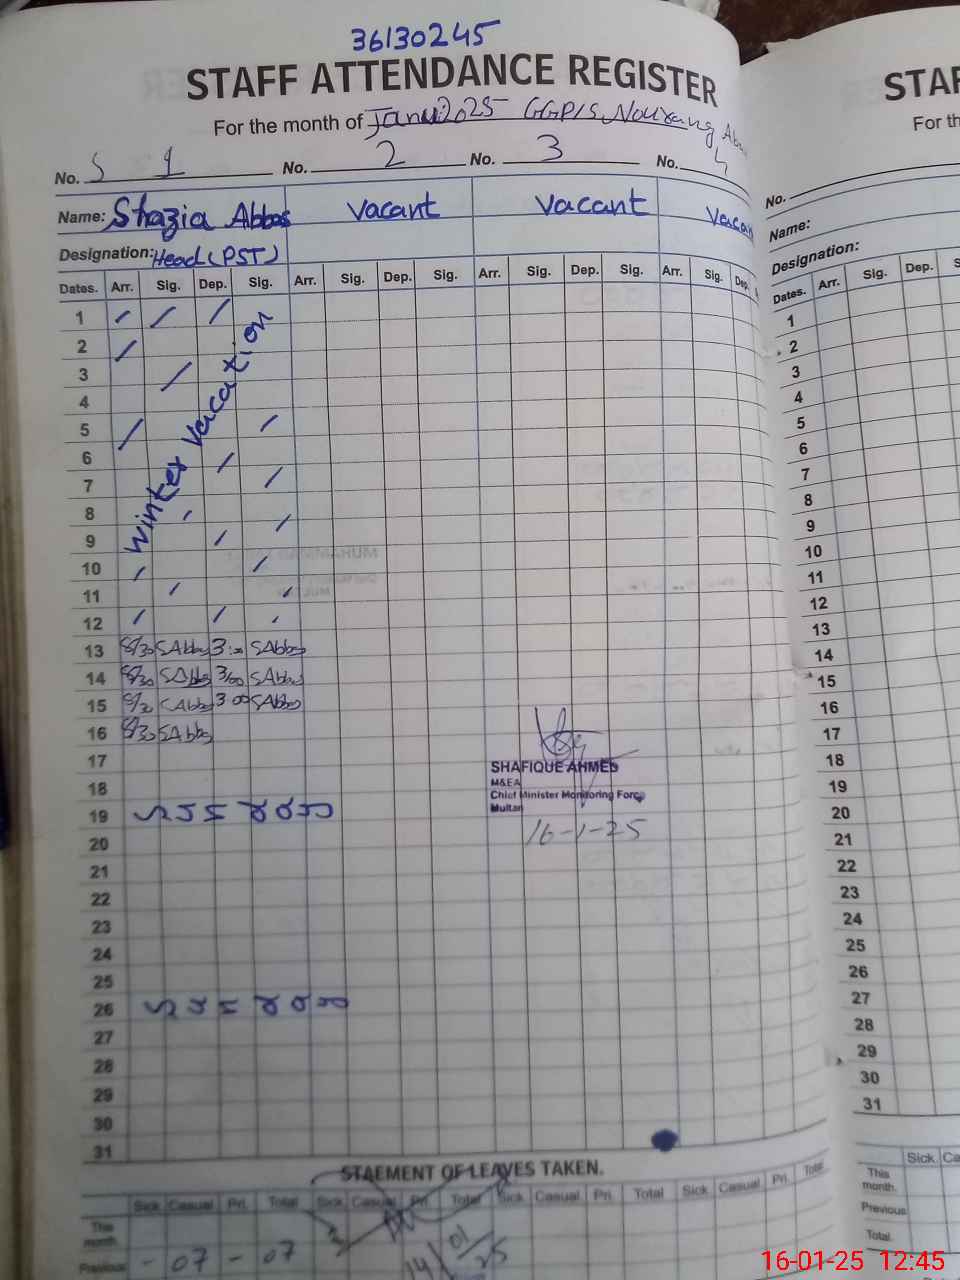 36130245
STAFF ATTENDANCE REGISTER
For the month of Janu:2025 GGP/S Nourang
No. S 1 No. 2 No. 3 No. 4
Name: Shazia Abbas Vacant Vacant Vacan
Designation: Head (PST)
Dates. Arr. Sig. Dep. Sig. Arr. Sig. Dep. Sig. Arr. Sig. Dep. Sig. Arr. Sig. Dep.
Winter Vacation
1
2
3
4
5
6
7
8
9
10
11
12
13 8/30 SAbbas 3:00 SAbbas
14 8/30 SAbbas 3/00 SAbbas
15 8/30 SAbbas 3 00 SAbbas
16 8/30 SAbbas
17
18
19 SUNDAY
20
21
22
23
24
25
26 SUNDAY
27
28
29
30
31
SHAFIQUE AHMED
M&EA
Chief Minister Monitoring Force
Multan
16-1-25
STAEMENT OF LEAVES TAKEN.
Sick Casual Pri. Total Sick Casual Pri. Total Sick Casual Pri. Total Sick Casual Pri. Total
This month.
Previous - 07 - 07
14/01/25
STAF
For th
No.
Name:
Designation:
Dates. Arr. Sig. Dep. S
1
2
3
4
5
6
7
8
9
10
11
12
13
14
15
16
17
18
19
20
21
22
23
24
25
26
27
28
29
30
31
Sick. Ca
This month.
Previous
Total.
16-01-25 12:45